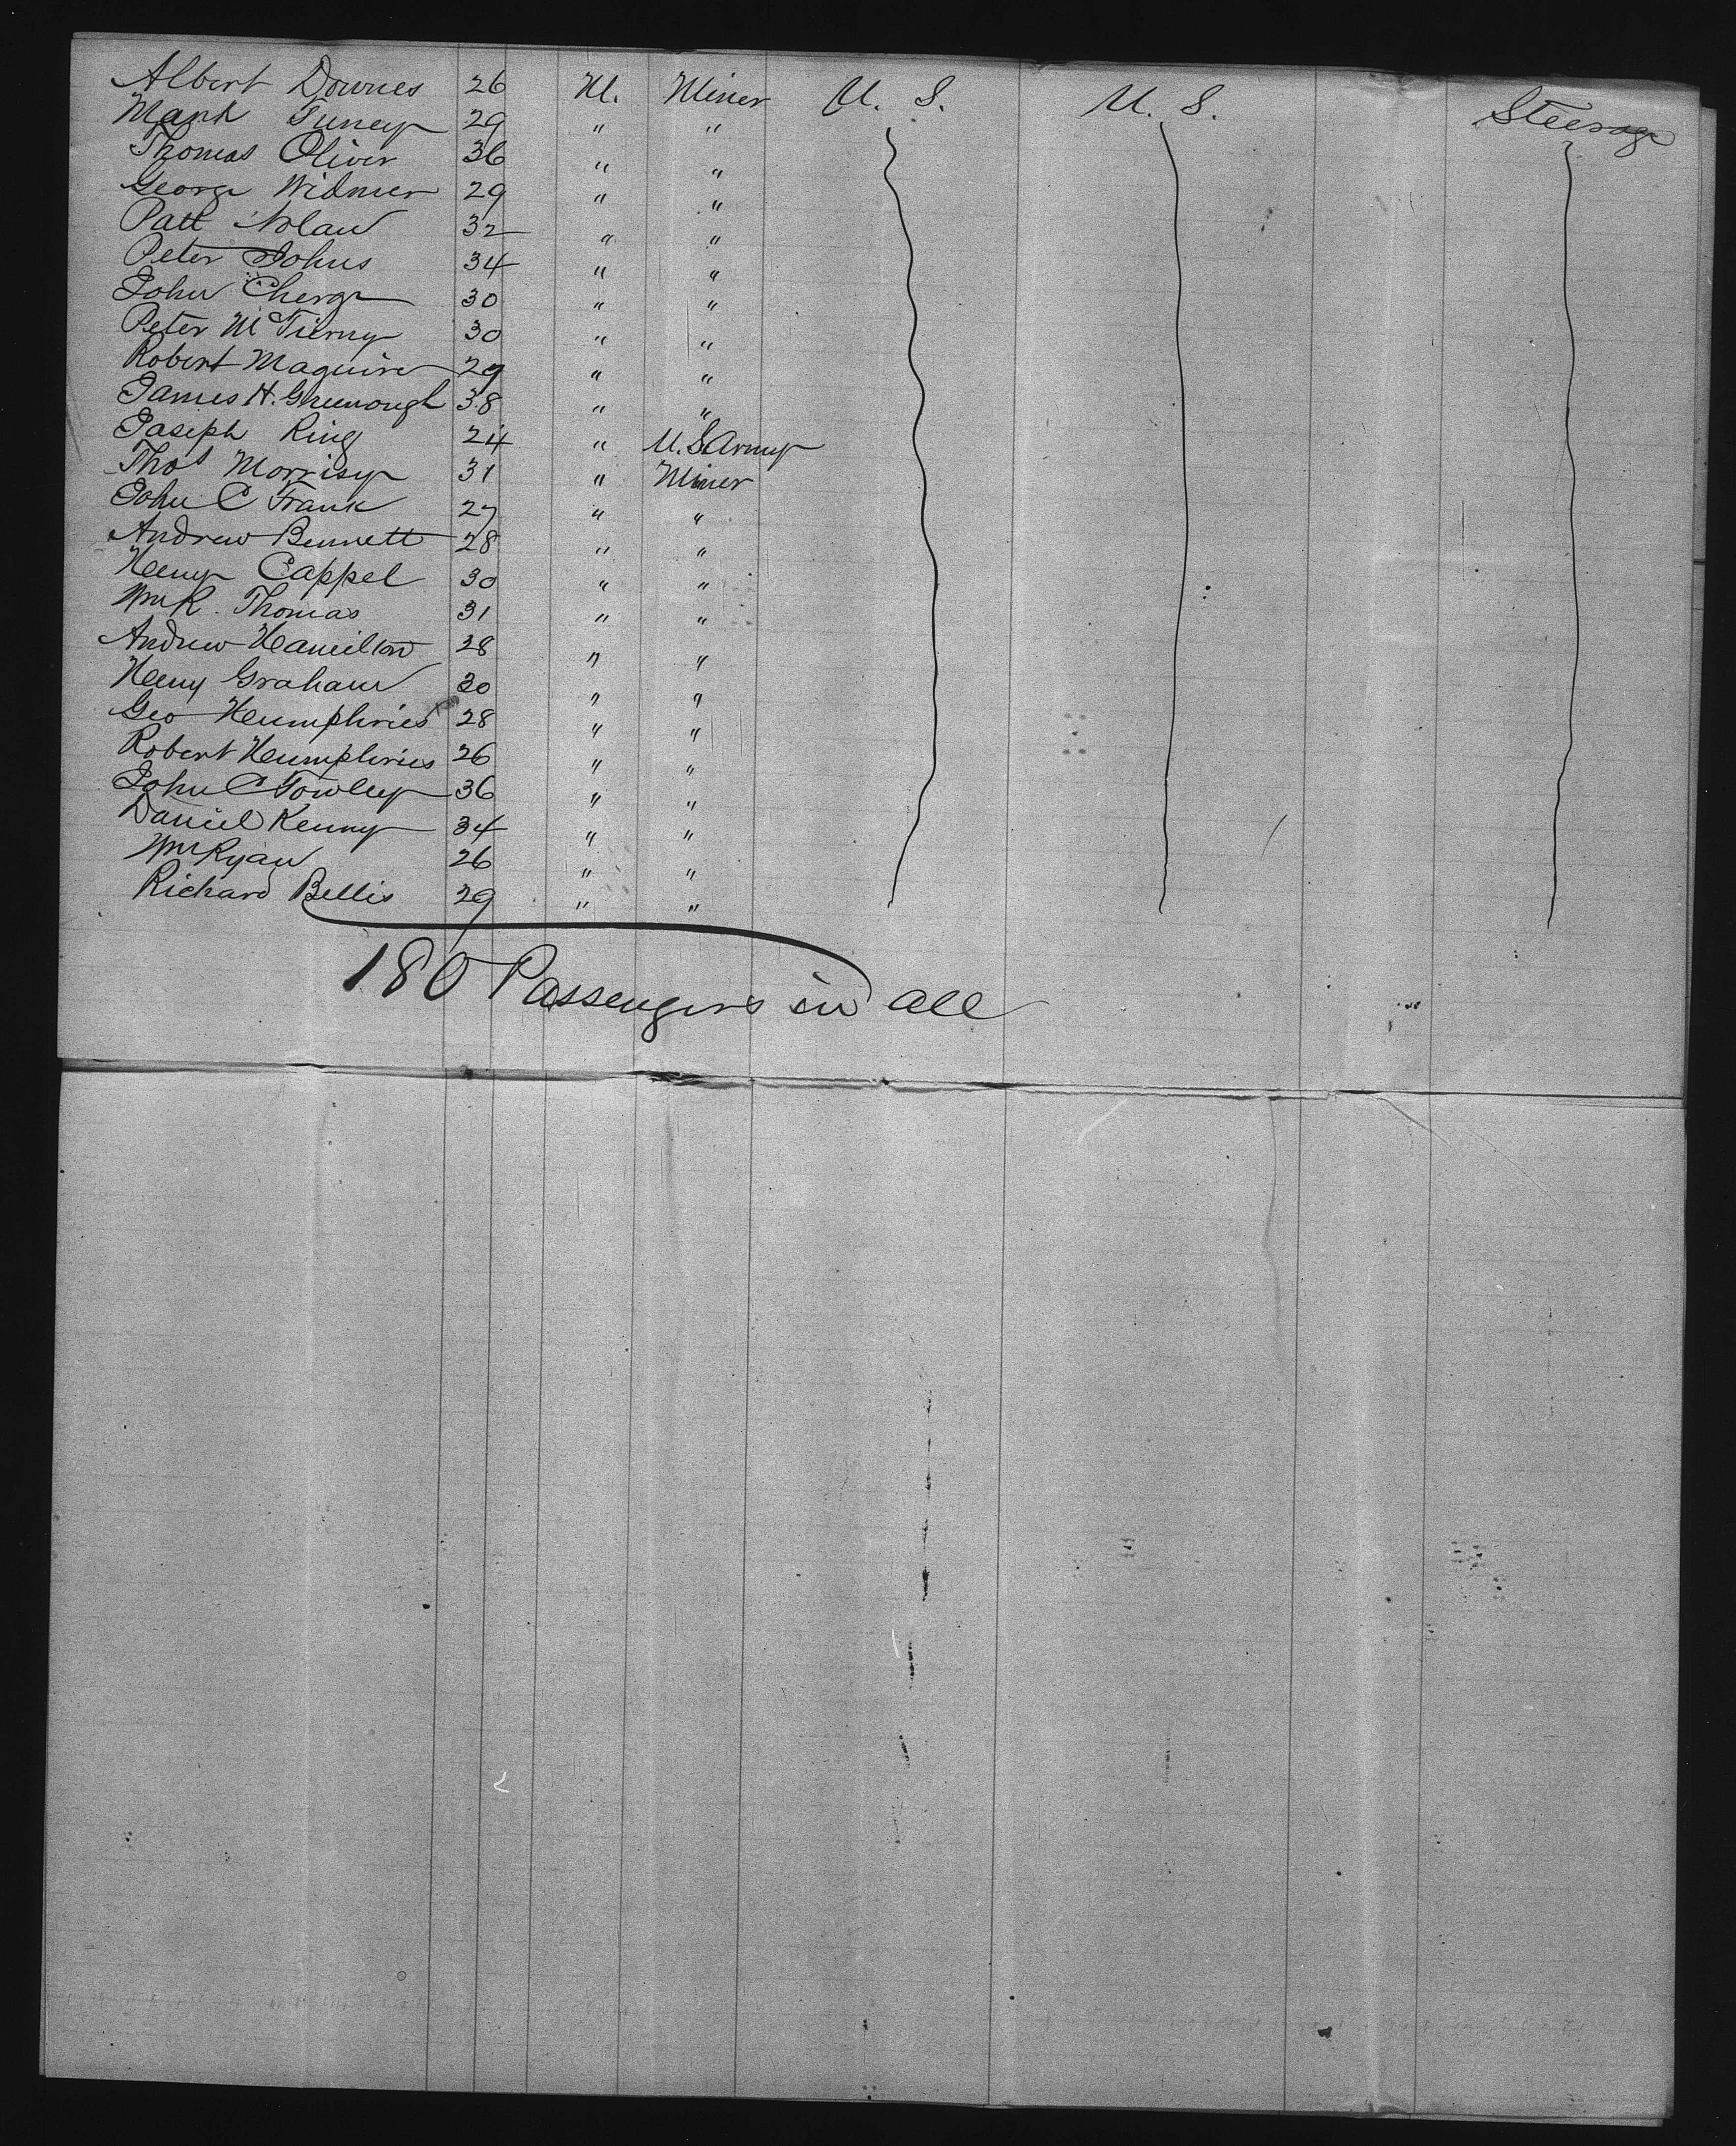 Albert Downes 26 M. Miner U. S. U. S. Steerage
Mark Tuney 29 " "
Thomas Oliver 36 " "
George Widmer 29 " "
Patt Nolan 32 " "
Peter Johns 34 " "
John 30 " "
Peter McTierny 30 " "
Robert Maguire 29 " "
James H. Greenough 38 " "
Joseph King 24 " U.S. Army
Thos Morrisy 31 " Miner
John C Frank 27 " "
Andrew Bennett 28 " "
Henry Cappel 30 " "
Wm R. Thomas 31 " "
Andrew Hamilton 28 " "
Henry Graham 30 " "
Geo Humphries 28 " "
Robert Humphries 26 " "
John C Fowley 36 " "
Daniel Kenny 34 " "
Wm Ryan 26 " "
Richard Bellis 29 " "
180 Passengers in all